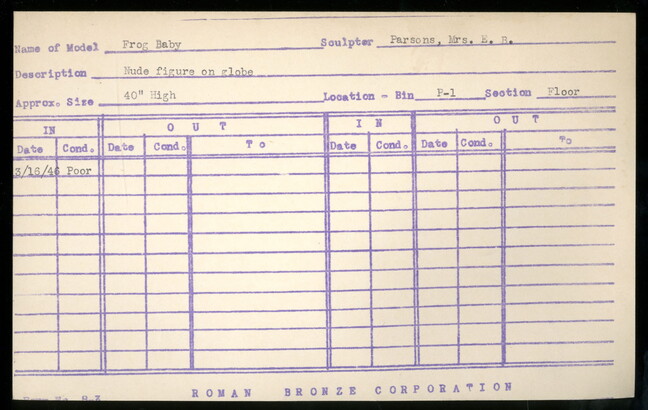 Name of Model Frog Baby Sculptor Parsons, Mrs. E. B.
Description Nude figure on globe
Approx. Size 40" High Location - Bin P-1 Section Floor
IN OUT IN OUT
Date Cond. Date Cond. To Date Cond. Date Cond. To
3/16/46 Poor
ROMAN BRONZE CORPORATION